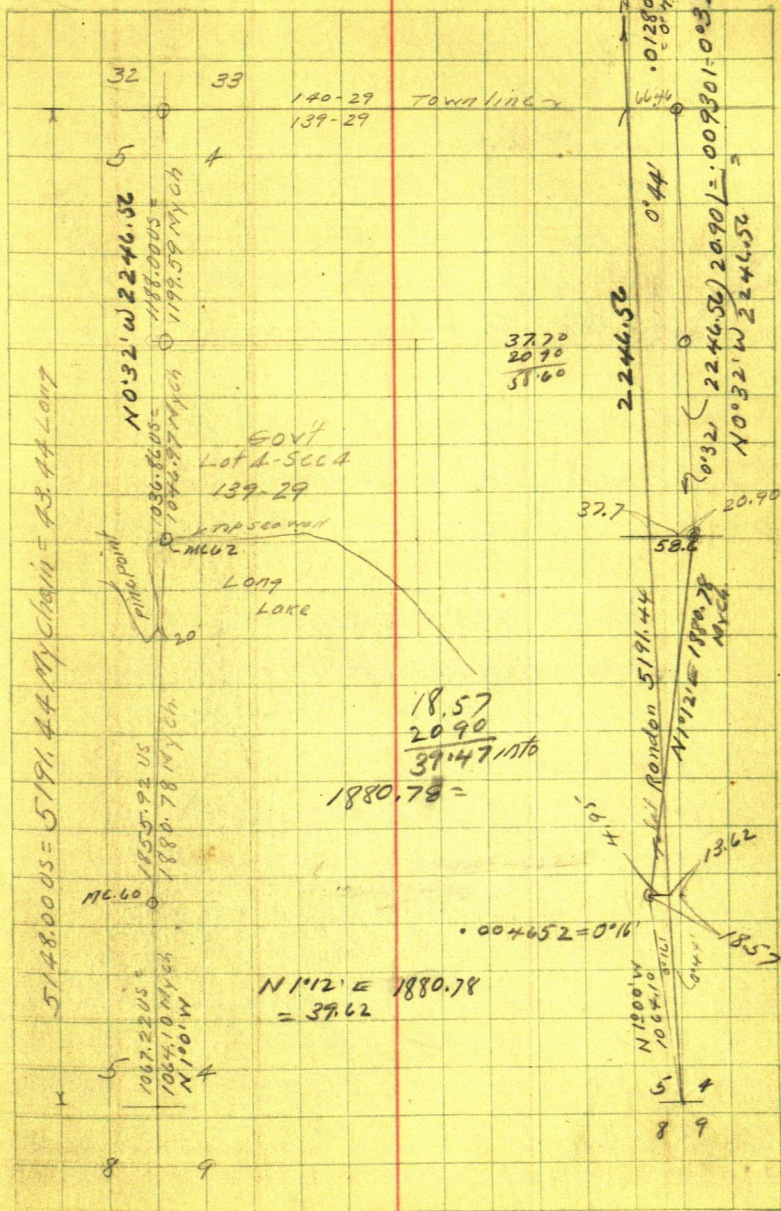 32 33
140-29 Town line
139-29
5 4
N0°32'W 2246.56
1188.00 US =
1199.59 My ch
1036.86 US =
1046.97 My ch
Gov't
Lot 4-Sec 4
139-29
MC62
Long
Lake
20'
5148.00 US = 5191.44 My Chain = 43.44 Long
1855.92 US
1880.78 My ch.
MC.60
1067.22 US =
1064.10 My ch
N1°01'W
5 4
8 9
37.70
20.90
58.60
18.57
20 90
39.47 into
1880.78 =
.004652 = 0°16'
N 1°12' E 1880.78
= 39.62
.01280
66.46
0°44'
2246.56
0°32' ( 2246.56) 20.901 = .009301 = 0°3
N0°32'W 2246.56
37.7 20.90
58.6
Total Random 5191.44
N1°12'E 1880.78
My ch.
4.95
13.62
18.57
N1°00'W
1064.10
0°16'
0°44'
5 4
8 9